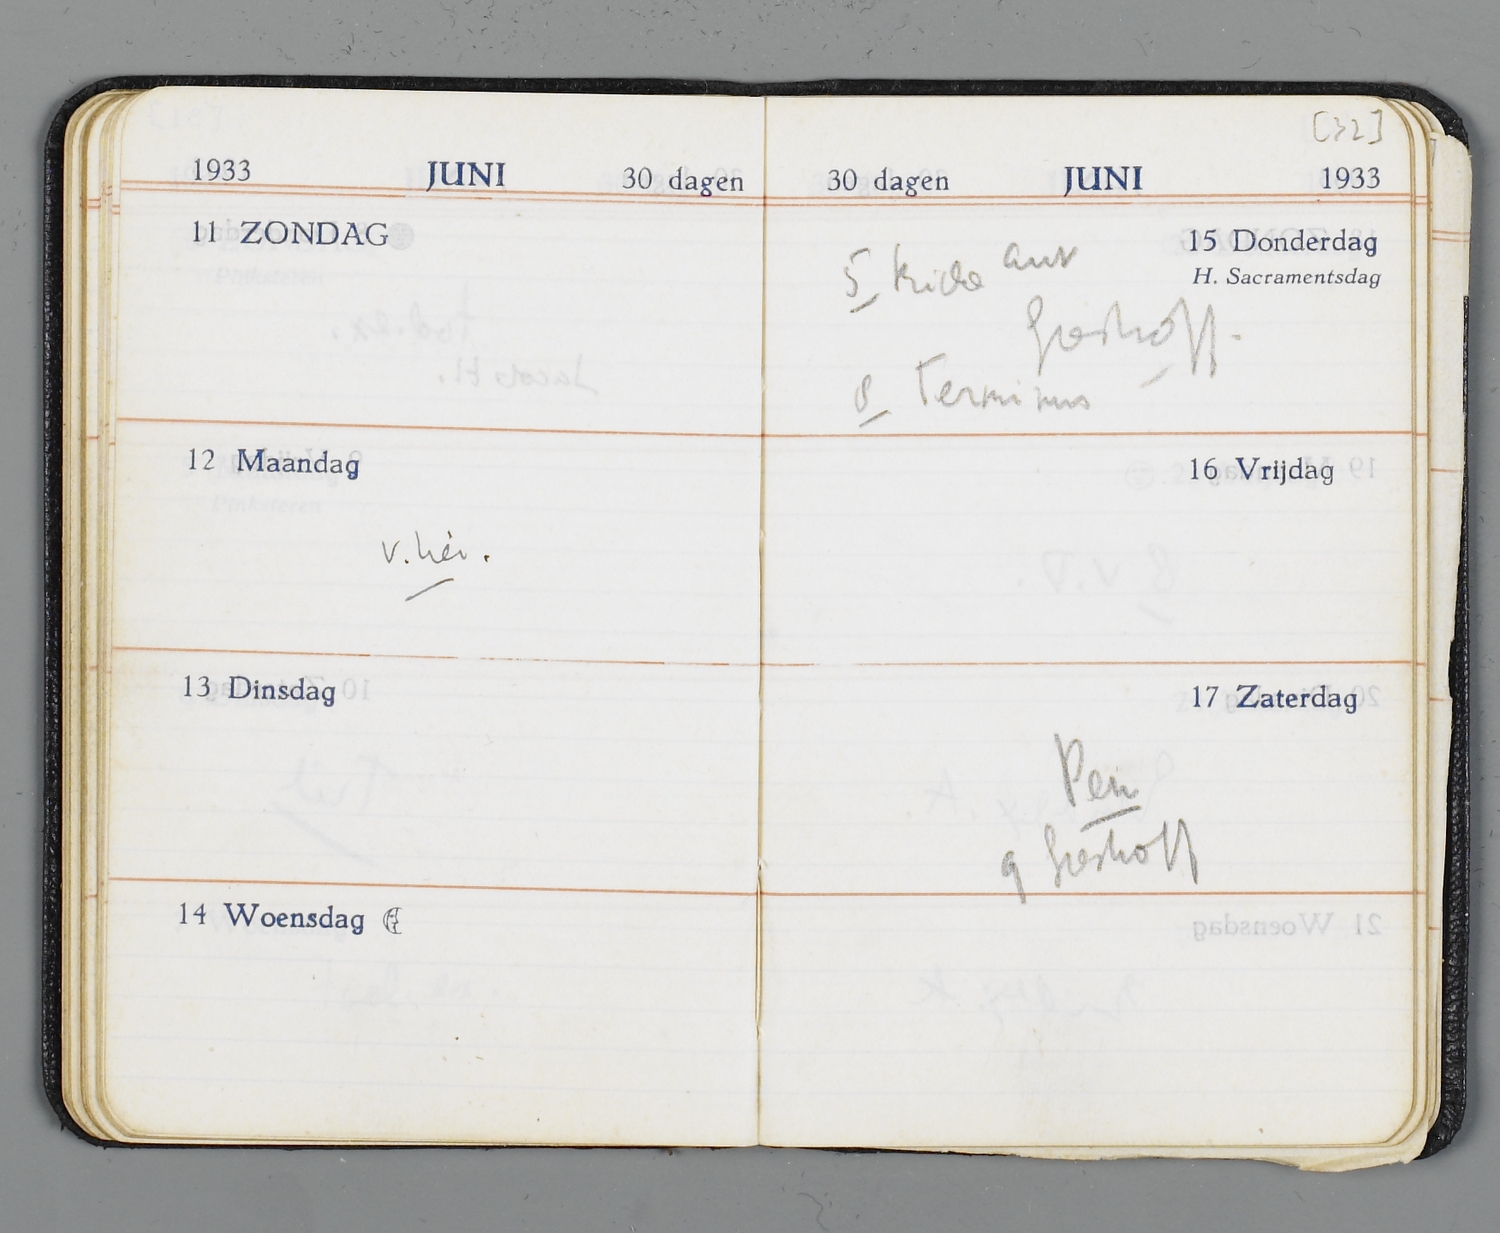 1933 JUNI 30 dagen
11 ZONDAG
12 Maandag
13 Dinsdag
14 Woensdag
[32]
30 dagen JUNI 1933
15 Donderdag
H. Sacramentsdag
5
8 Terminus
16 Vrijdag
17 Zaterdag
9